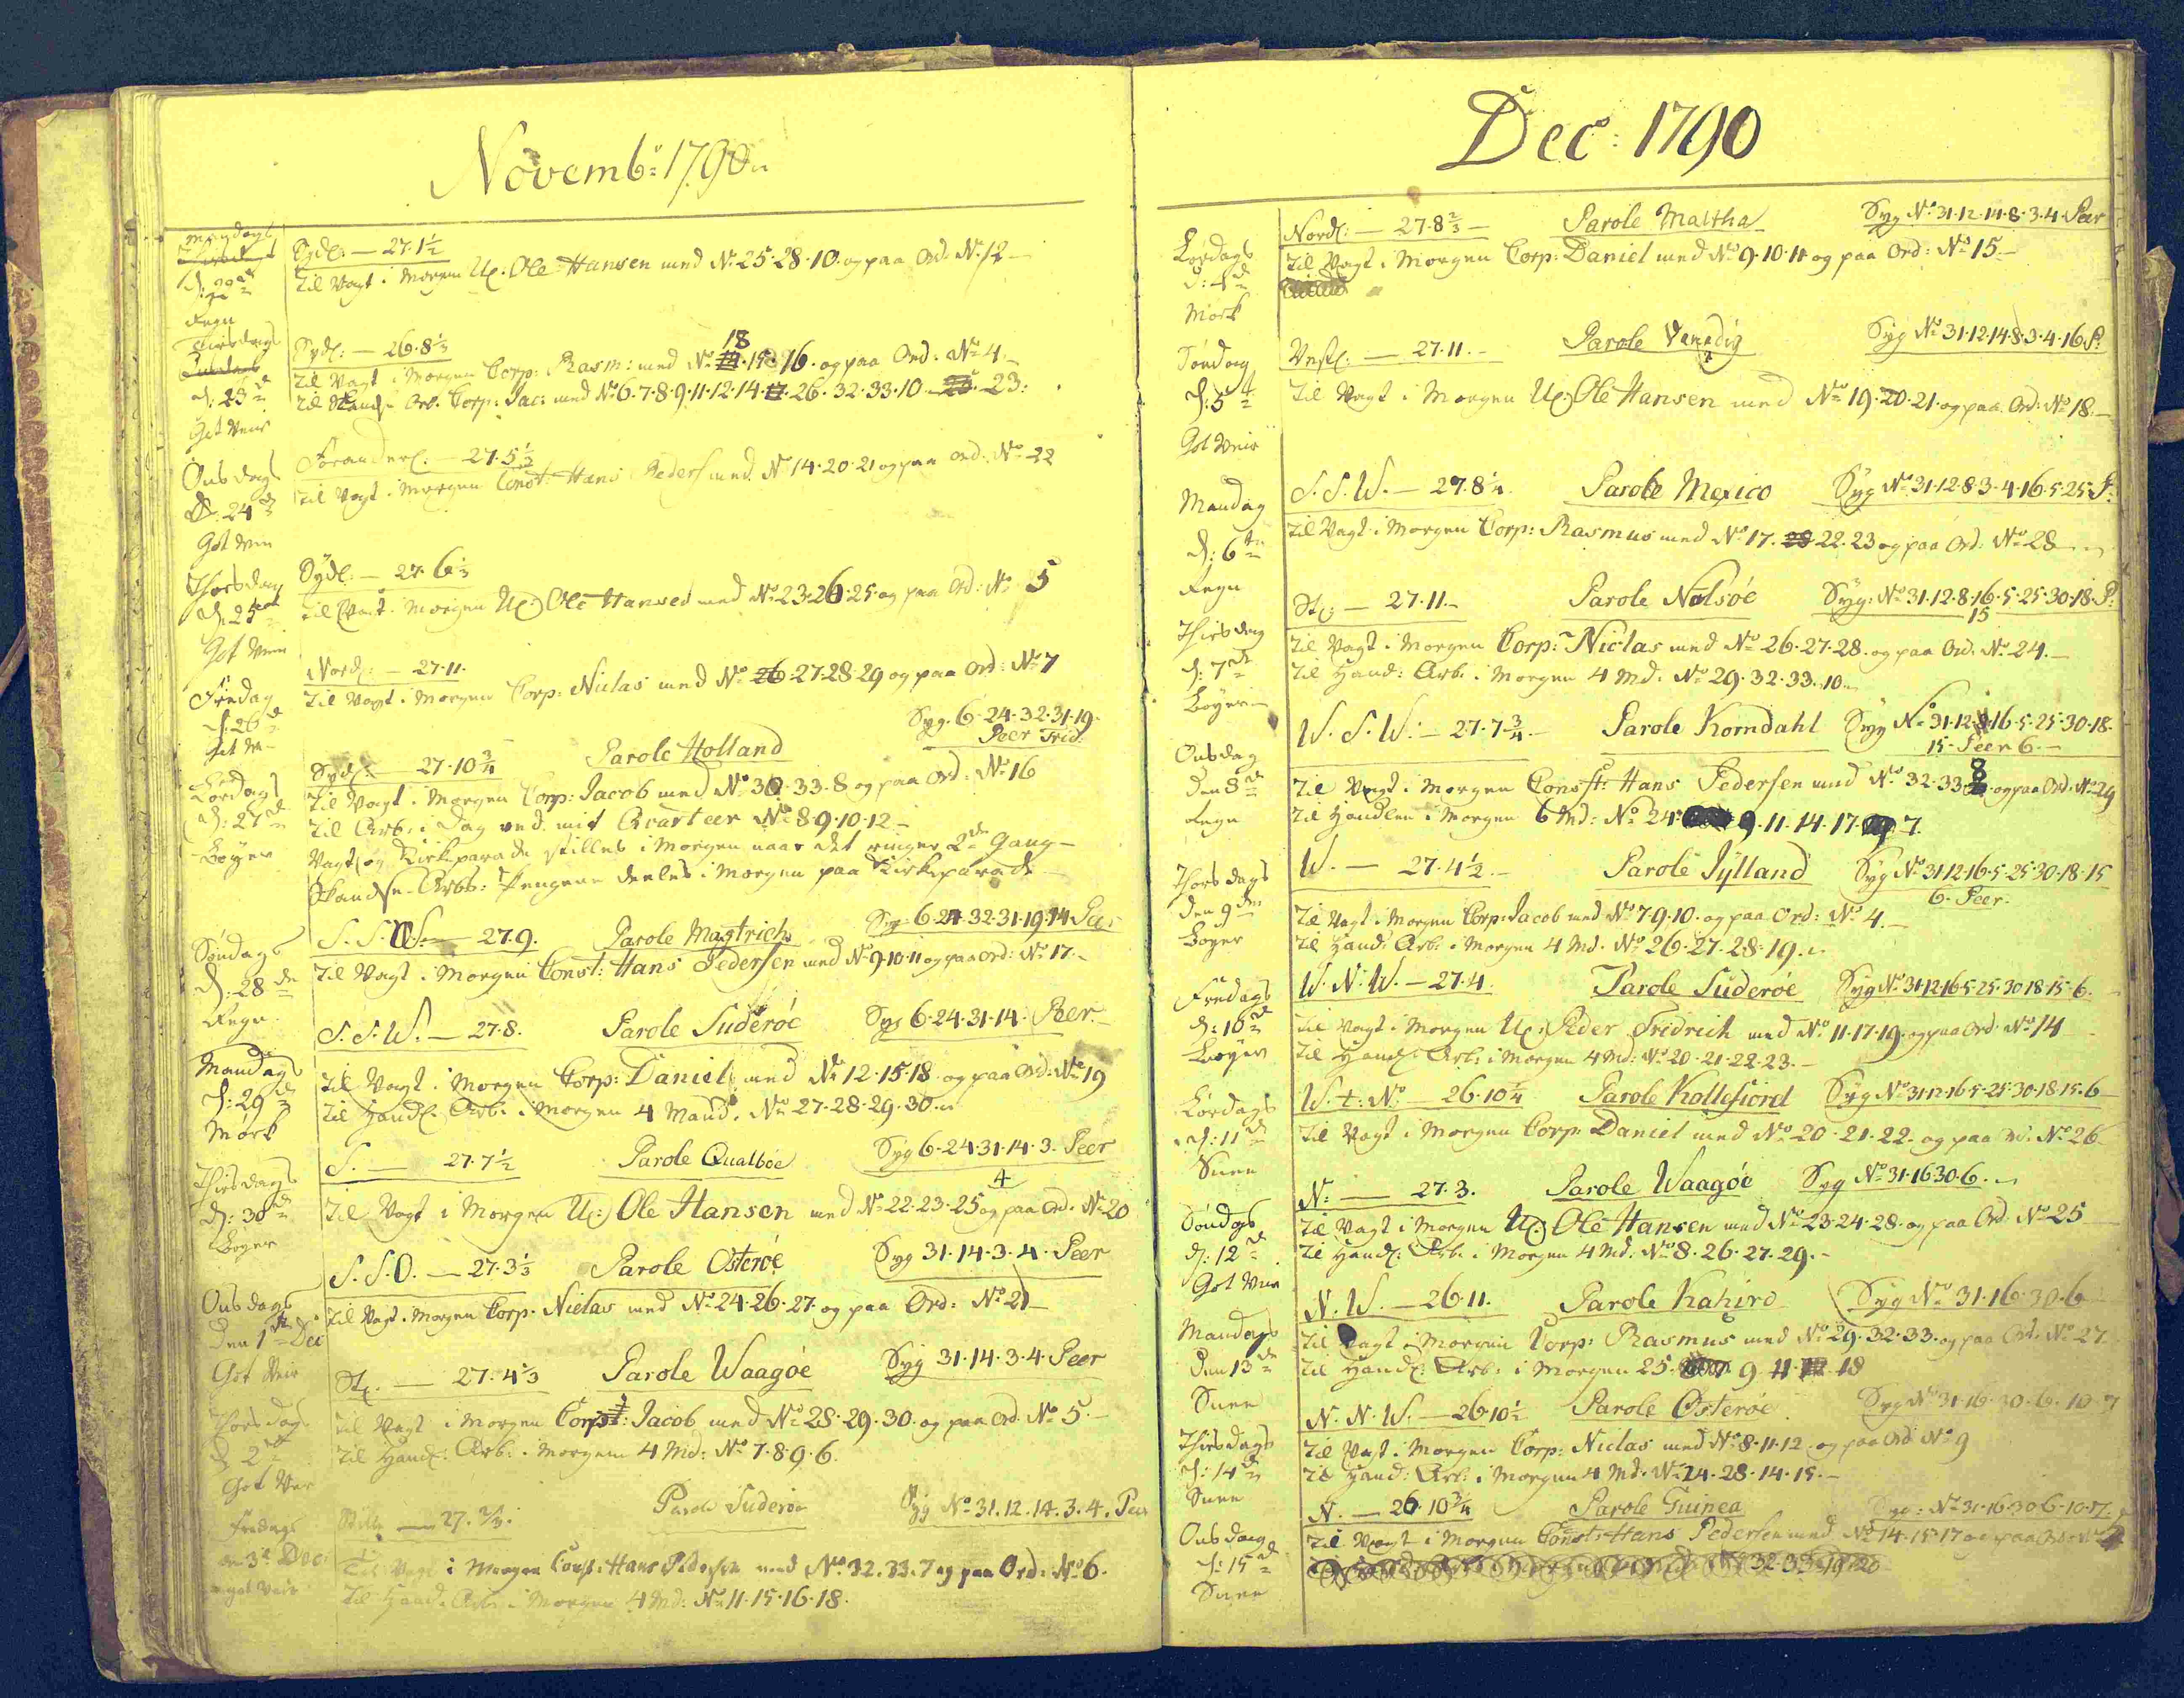 Novembr: 1790
Mandags
d: 22de
Regn
Sydl: — 27·1½
Til Vagt i Morgen Uc: Ole Hansen med No 25·28·10· og paa Ord: No 12 —
Tirsdags
d: 23de
Got Veir
Sydl: — 26·8⅓
Til Vagt i Morgen Corp: Rasm: med No 18·15·16· og paa Ord: No 4 —
Til Skandse Arb: Corp: Jac: med No 6·7·8·9·11·12·14·26·32·33·10 — 23·
Onsdags
d: 24de
Got Veir
Foranderl: — 27·5⅓
Til Vagt i Morgen Const: Hans Peders: med No 14·20·21 og paa Ord: No 22
Thorsdag
d: 25de
Got Veir
Sydl: — 27·6⅓
Til Vagt i Morgen Uc: Ole Hansen med No 23·26·25· og paa Ord: No 5
Fredag
d: 26de
Got V—
Nordl: — 27·11·
Til Vagt i Morgen Corp: Niclas med No 27·28·29 og paa Ord: No 7
Lørdags
d: 27de
Bøyer
Sydl: — 27·10¾ Parole Holland Syg· 6·24·32·31·19·
Peer Frid:
Til Vagt i Morgen Corp: Jacob med No 30·33·8 og paa Ord: No 16
Til Arb: i Dag ved mit Qvarteer No 8·9·10·12 —
Vagt og Kirkeparade stilles i Morgen naar det ringer 2de Gang —
Skandse Arb: Pengene deeles i Morgen paa Kirkeparade —
Søndags
d: 28de
Regn
27·9· Parole Mastrich Syg 6·24·32·31·19·14 Peer
Til Vagt i Morgen Const: Hans Pedersen med No 9·10·11 og paa Ord: No 17 —
Mandags
d: 29de
Mørk
S. S. W. — 27·8· Parole Suderøe Syg 6·24·31·14· Peer
Til Vagt i Morgen Corp: Daniel med No 12·15·18· og paa Ord: No 19
Til Handl: Arb: i Morgen 4 Mand: No 27·28·29·30·
Thisdags
d: 30de
Bøyer
S. — 27·7½ Parole Qualbøe Syg 6·24·31·14·3· Peer
4
Til Vagt i Morgen Uc: Ole Hansen med No 22·23·25 og paa Ord: No 20
Onsdags
den 1ste Dec
Got Veir
S. S. O. — 27·3⅓ Parole Osterøe Syg 31·14·3·4· Peer
Til Vagt i Morgen Corp: Niclas med No 24·26·27· og paa Ord: No 21 —
Thorsdags
d 2den
Got Veir
Stl: — 27·4⅓ Parole Waagøe Syg 31·14·3·4· Peer
Til Vagt i Morgen Corp: Jacob med No 28·29·30· og paa Ord: No 5 —
Til Handl: Arb: i Morgen 4 Md: No 7·8·9·6·
Fredags
den 3de Dec:
got Veir
Stille — 27· Parole Suderøe Syg No 31.12.14.3.4. Peer
Til Vagt i Morgen Const: Hans Pedersen med No 32.33.7 og paa Ord: No 6.
Til Handl: Arb: i Morgen 4 Md: No 11·15·16·18·
Dec: 1790
Lørdags
d: 4de
Mørk
Nordl: — 27·8⅔ — Parole Maltha Syg No 31·12·14·8·3·4· Peer
Til Vagt i Morgen Corp: Daniel med No 9·10·11 og paa Ord: No 15 —
Søndag
d: 5te
Got Veir
Vestl: — 27·11 — Parole Venedig Syg No 31·12·14·8·3·4·16· P:
Til Vagt i Morgen Uc: Ole Hansen med No 19·20·21· og paa Ord: No 18 —
Mandag
d: 6te
Regn
S. S. W. — 27·8¼ Parole Mexico Syg No 31·12·8·3·4·16·5·25· P:
Til Vagt i Morgen Corp: Rasmus med No 17·22·23 og paa Ord: No 28
Thisdag
d: 7de
Bøyer
Stl: — 27·11 — Parole Nolsøe Syg: No 31·12·8·16·5·25·30·18· P:
15
Til Vagt i Morgen Corp: Niclas med No 26·27·28· og paa Ord: No 24 —
Til Hand: Arb: i Morgen 4 Md: No 29·32·33·10·
Onsdag
den 8de
Regn
W. S. W: — 27·7¾ — Parole Korndahl Syg No 31·12·16·5·25·30·18·
15· Peer 6 —
Til Vagt i Morgen Const: Hans Pedersen med No 32·33·8 og paa Ord: No 29
Til Handlen i Morgen 6 Md: No 24· 9·11·14·17· 7·
Thorsdags
den 9de
Bøyer
W. — 27·4½ — Parole Jylland Syg No 31·12·16·5·25·30·18·15
6· Peer·
Til Vagt i Morgen Corp: Jacob med No 7·9·10· og paa Ord: No 4 —
Til Hand: Arb: i Morgen 4 Md: No 26·27·28·19·
Fredags
d: 10de
Bøyer
W. N. W. — 27·4· Parole Suderøe Syg No 31·12·16·5·25·30·18·15·6·
Til Vagt i Morgen Uc: Peder Fridrich med No 11·17·19· og paa Ord: No 14
Til Handl: Arb: i Morgen 4 Md: No 20·21·22·23 —
Lørdags
d: 11de
Snee
W. t: N. — 26·10¼ Parole Kollefiord Syg No 31·12·16·5·25·30·18·15·6
Til Vagt i Morgen Corp: Daniel med No 20·21·22· og paa Ord: No 26
Søndags
d: 12de
Got Veir
N: — 27·3· Parole Waagøe Syg No 31·16·30·6·
Til Vagt i Morgen Uc: Ole Hansen med No 23·24·28· og paa Ord: No 25
Til Handl: Arb: i Morgen 4 Md: No 8·26·27·29 —
Mandags
den 13de
Snee
N. W. — 26·11· Parole Kahiro Syg No 31·16·30·6
Til Vagt i Morgen Corp: Rasmus med No 29·32·33· og paa Ord: No 27·
Til Handl: Arb: i Morgen 25· 9·11· 18
Thisdags
d: 14de
Snee
N. N. W. — 26·10½ Parole Osterøe Syg No 31·16·30·6·10·7
Til Vagt i Morgen Corp: Niclas med No 8·11·12· og paa Ord: No 9
Til Hand: Arb: i Morgen 4 Md: No 24·28·14·15 —
Onsdag
d: 15de
Snee
N. — 26·10¾ Parole Guinea Syg: No 31·16·30·6·10·7·
Til Vagt i Morgen Const: Hans Pedersen med No 14·15·17 og paa Ord: No